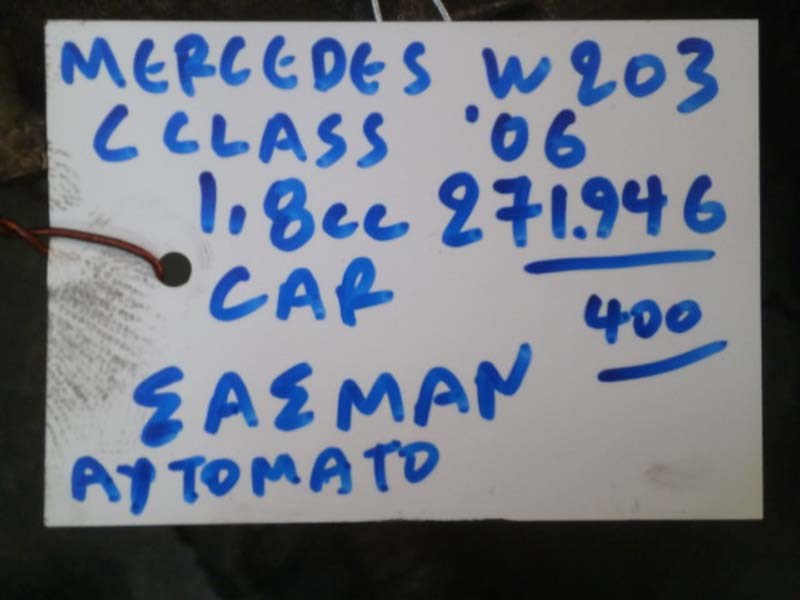 MERCEDES W203
C CLASS '06
1,8cc 271.946
CAR
400
ΣΑΣΜΑΝ
ΑΥΤΟΜΑΤΟ